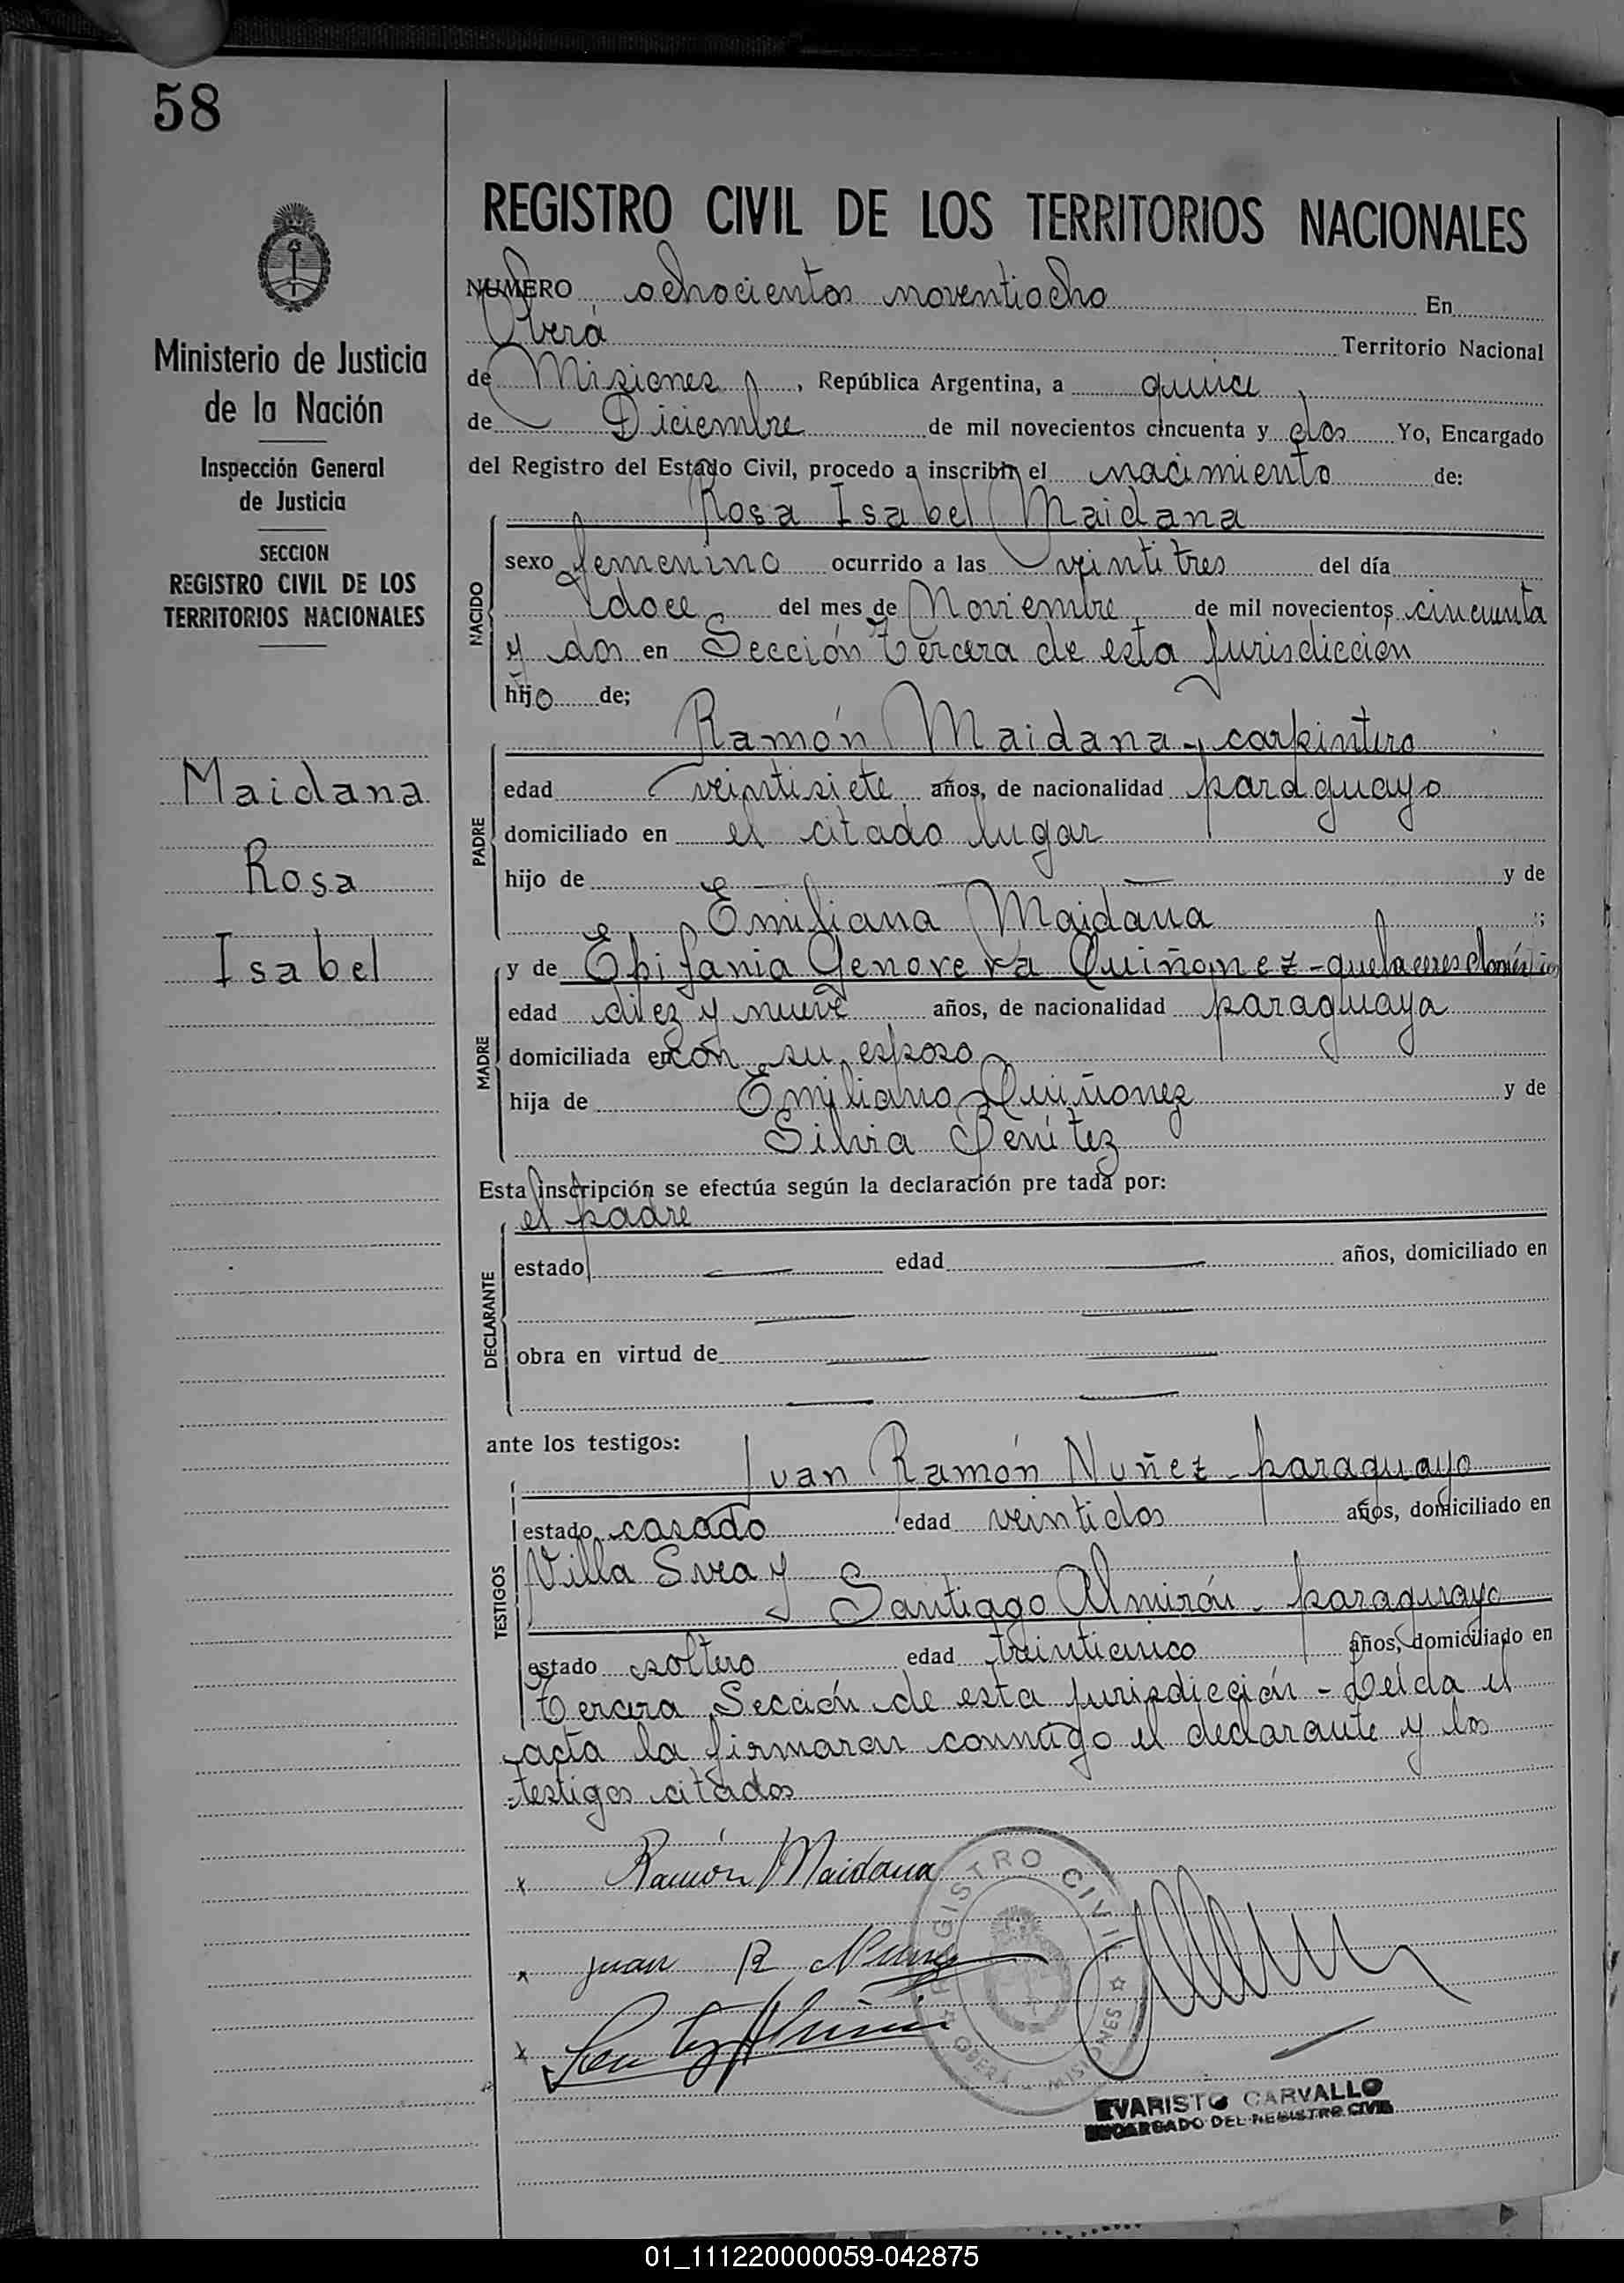 58
REGISTRO CIVIL DE LOS TERRITORIOS NACIONALES
NUMERO ochocientos noventiocho En
Oberá Territorio Nacional
de Misiones, República Argentina, a quince
de Diciembre de mil novecientos cincuenta y dos Yo, Encargado
del Registro del Estado Civil, procedo a inscribir el nacimiento de:
Rosa Isabel Maidana
NACIDO
sexo femenino ocurrido a las veintitres del día
doce del mes de Noviembre de mil novecientos cincuenta
y dos en Sección tercera de esta jurisdicción
hijo de;
PADRE
Ramón Maidana - carpintero
edad veintisiete años, de nacionalidad paraguayo
domiciliado en el citado lugar
hijo de — y de
Emiliana Maidana ;
MADRE
y de Epifania Genoveva Quiñonez - quehaceres domésticos
edad diez y nueve años, de nacionalidad paraguaya
domiciliada en con su esposo
hija de Emiliano Quiñonez y de
Silvia Benítez
Esta inscripción se efectúa según la declaración pre tada por:
el padre
DECLARANTE
estado — edad — años, domiciliado en
— —
obra en virtud de — —
— —
ante los testigos:
Juan Ramón Nuñez - paraguayo
TESTIGOS
estado casado edad veintidos años, domiciliado en
Villa Svea y
Santiago Almirón - paraguayo
estado soltero edad treinticinco años, domiciliado en
Tercera Sección de esta jurisdicción - Leída el
acta la firmaron conmigo el declarante y los
testigos citados
x Ramón Maidana
x Juan R Nuñez
x
REGISTRO CIVIL
OBERA - MISIONES
EVARISTO CARVALLO
ENCARGADO DEL REGISTRO CIVIL
Ministerio de Justicia
de la Nación
Inspección General
de Justicia
SECCION
REGISTRO CIVIL DE LOS
TERRITORIOS NACIONALES
Maidana
Rosa
Isabel
01_111220000059-042875